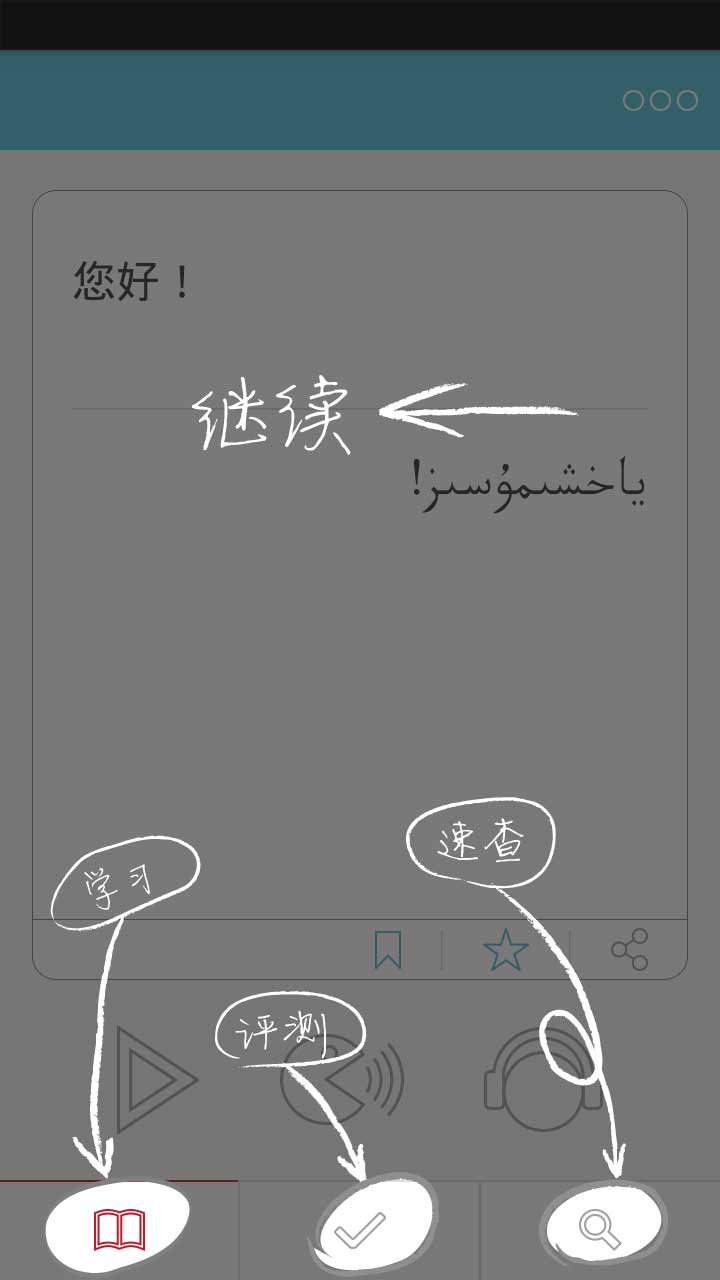 您好！
继续
ياخشىمۇسىز!
速查
学习
评测